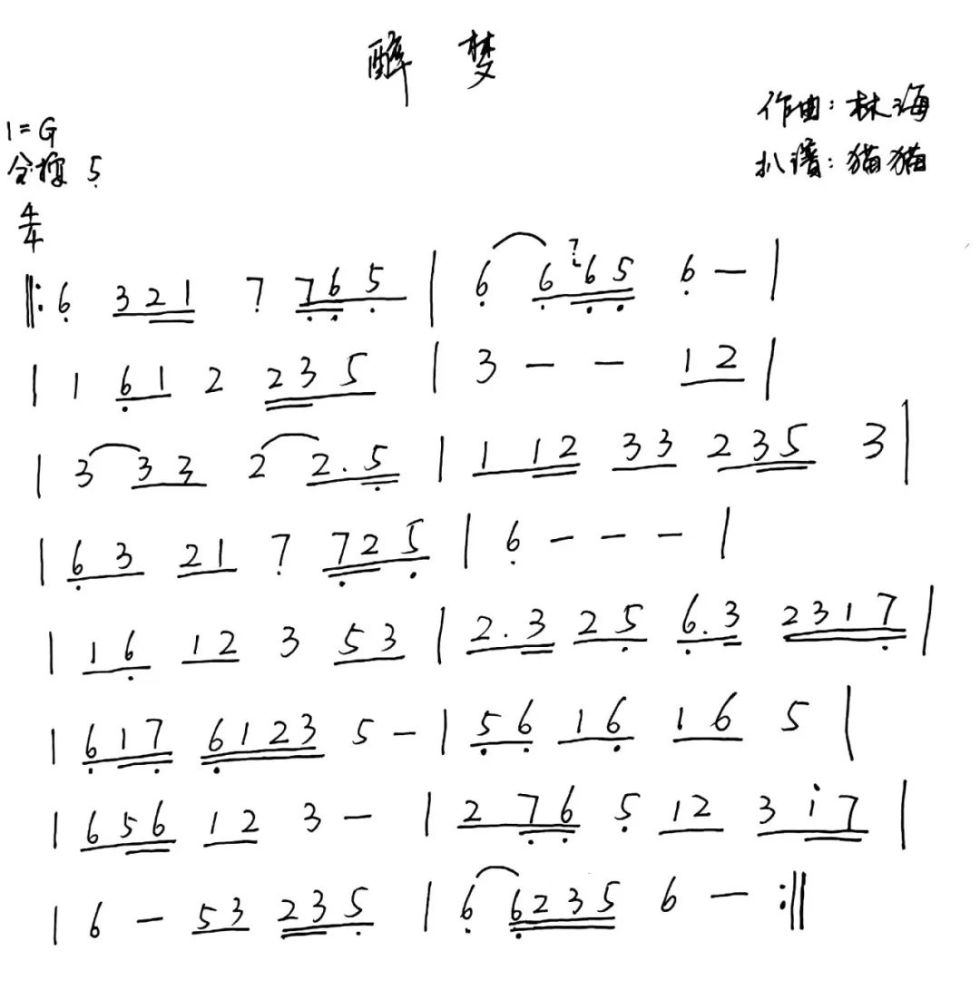 醉梦
作曲：林海
1=G
全按 5̣
扒谱：猫猫
4/4
‖: 6̣ 321 7̣ 7̣6̣5̣ | 6̣ 6̣ 7̣ 6̣5̣ 6̣ — |
| 1 6̣1 2 235 | 3 — — 12 |
| 3 33 2 2.5̣ | 1 12 33 235 3 |
| 6̣3 21 7̣ 7̣25̣ | 6̣ — — — |
| 16̣ 12 3 53 | 2.3 25̣ 6̣.3 2317̣ |
| 6̣17̣ 6̣123 5 — | 5̣6̣ 16̣ 16 5 |
| 656 12 3 — | 2 7̣6̣ 5̣ 12 3 1̇7 |
| 6 — 53 235̣ | 6̣ 6̣235 6 — :‖